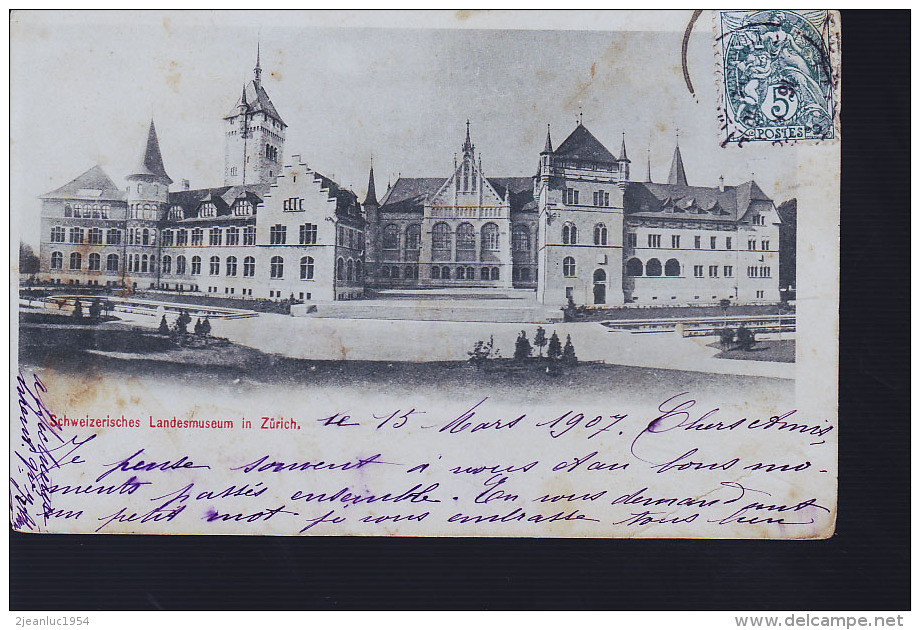 5
POSTES
Schweizerisches Landesmuseum in Zürich.
le 15 Mars 1907. Chers Amis,
Je pense souvent à vous et au bons mo-
ments passés ensemble. En vous demandant
un petit mot je vous embrasse tous bien
2jeanluc1954
delcampe.net